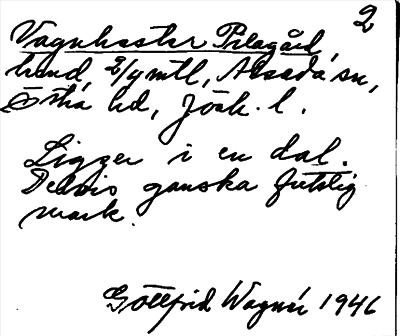 2
Vagnhester Pilagård,
hmd, 2/4 mtl, Absada sn,
Östra hd, Jönk. l.
Ligger i en dal.
Delvis ganska fuktig
mark.
Gottfrid Wagnér 1946